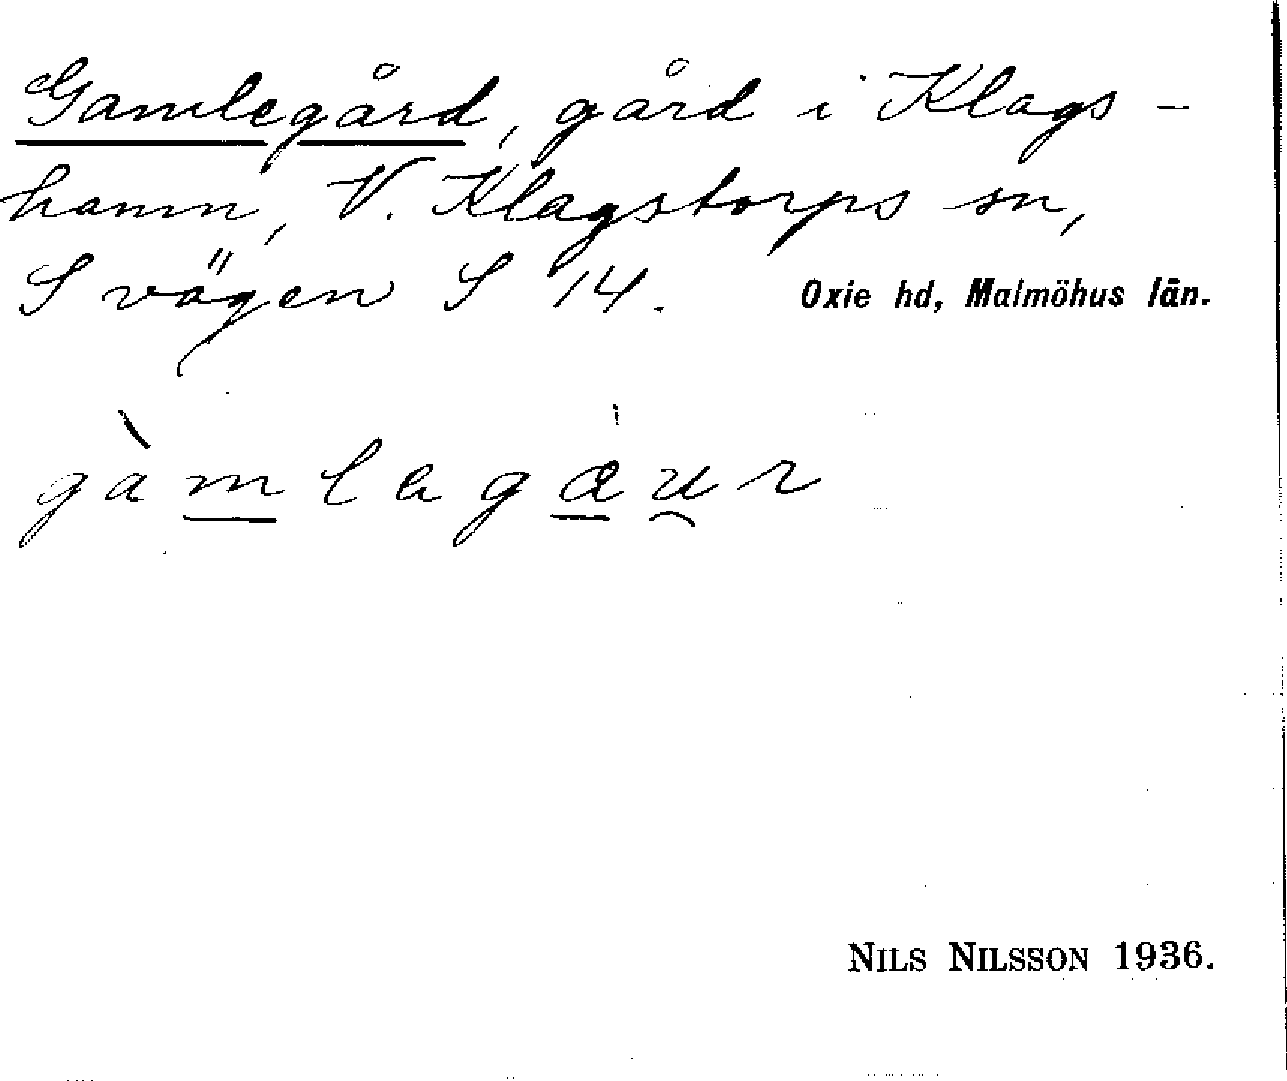 Gamlegård, gård i Klags-
hamn, V. Klagstorps sn,
S vägen S 14. Oxie hd, Malmöhus län.
gàmlagæur
NILS NILSSON 1936.